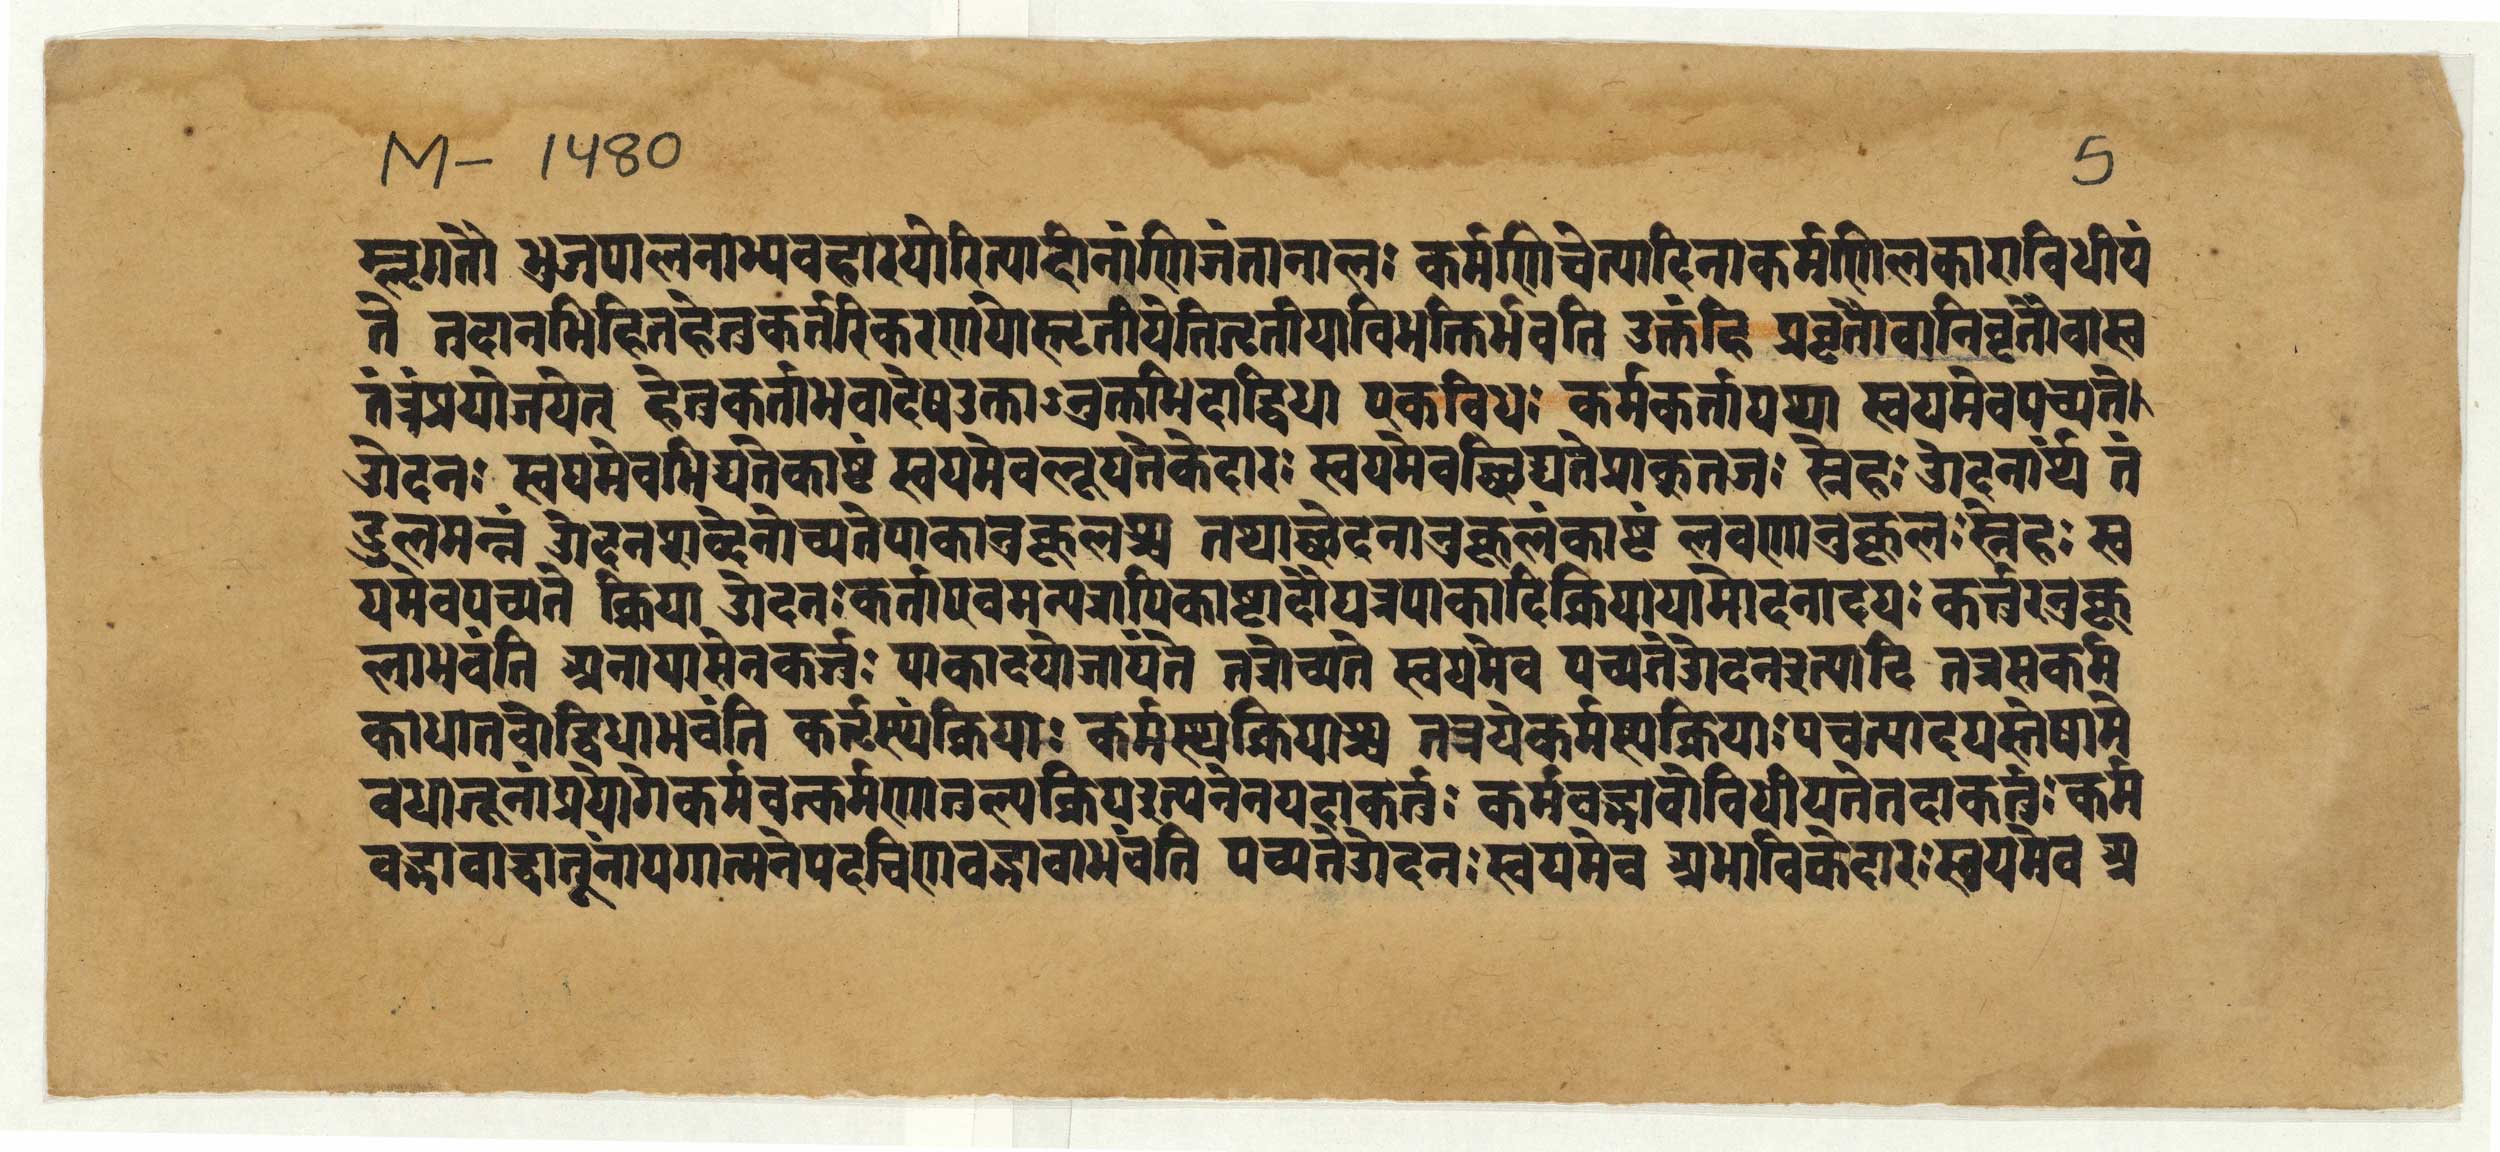 M- 1480
5
स्लृगतौ भुजपालनाभ्यवहारयोरित्यादीनांणिजंतानाल: कर्मणिचेत्यादिनाकर्मणिलकाराविधीयं
ते तदानभिहितहेतुकर्तरिकरणयोस्तृतीयेतितृतीयाविभक्तिर्भवति उक्तंहि प्रवृत्तौवानिवृत्तौवास्व
तंत्रंप्रयोजयेत् हेतुकर्ताभवादेषउक्ताऽनुक्तभिदाद्विधा एकविधः कर्मकर्तायथा स्वयमेवपच्यते।
ओदनः स्वयमेवभिद्यतेकाष्टं स्वयमेवलूयतेकेदारः स्वयमेवछिद्यतेप्राकृतजः स्नेहः ओदनार्थं तं
डुलमन्नं ओदनशब्देनोच्यतेपाकानुकूलश्च तथाछेदनानुकूलंकाष्टं लवणानुकूलःस्नेहः स्व
यमेवपच्यते क्रिया ओदनःकर्ताएवमन्यत्रापिकाष्टादौयत्रपाकादिक्रियायामोदनादयः कर्त्तुरनुकू
लाभवंति अनायासेनकर्त्तुः पाकादयोजायंते तत्रोच्यते स्वयमेव पच्यतेओदनइत्यादि तत्रसकर्म
काधातवोद्विधाभवंति कर्तृस्थक्रियाः कर्मस्थक्रियाश्च तत्रयेकर्मस्थक्रियाःपचत्यादयस्तेषामे
वधातूनांप्रयोगेकर्मवत्कर्मणातुल्यक्रियइत्यनेनयदाकर्तुः कर्मवद्भावोविधीयतेतदाकर्तुःकर्म
वद्भावाद्धातूनांयगात्मनेपदचिणवद्भावाभवंति पच्यतेओदनःस्वयमेव अभाविकेदारःस्वयमेव अ